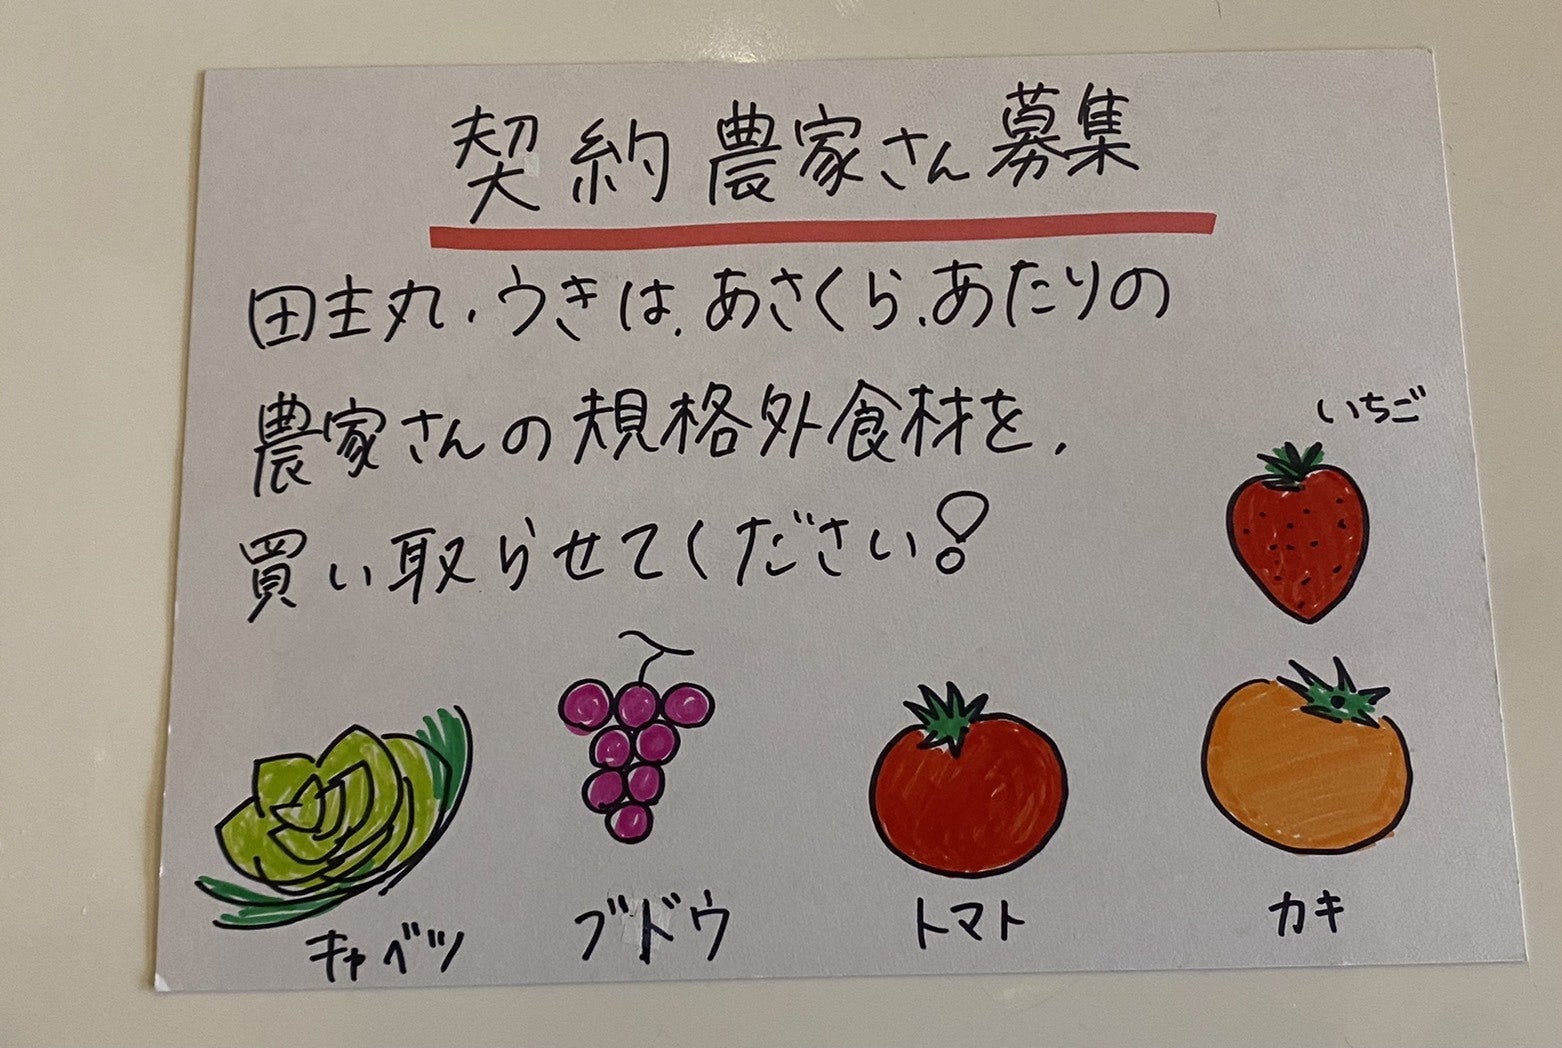 契約農家さん募集
田主丸、うきは、あさくら、あたりの
農家さんの規格外食材を、
買い取らせてください!
いちご
キャベツ
ブドウ
トマト
カキ